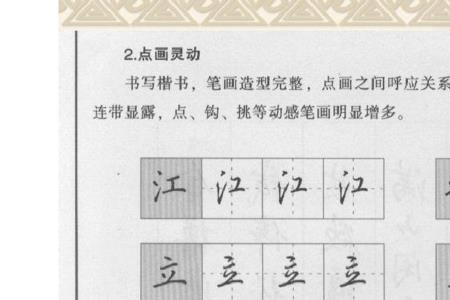 2.点画灵动
书写楷书，笔画造型完整，点画之间呼应关系
连带显露，点、钩、挑等动感笔画明显增多。
江 江 江 江
立 立 立 立